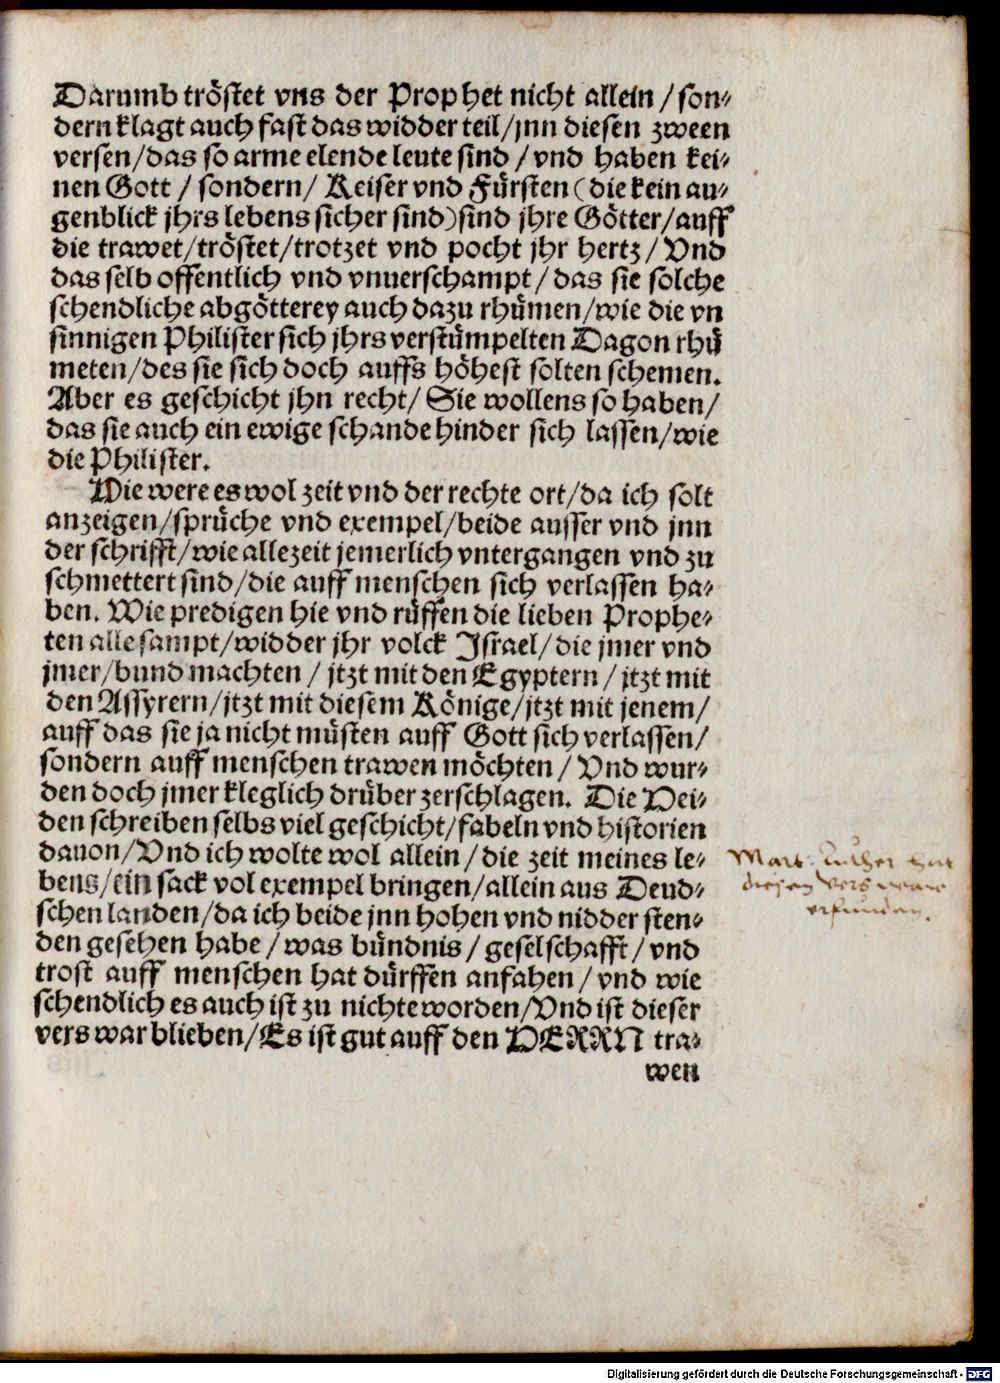 Darumb tröstet vns der Prophet nicht allein / son⸗
dern klagt auch fast das widder teil/jnn diesen zween
versen/das so arme elende leute sind / vnd haben kei⸗
nen Gott / sondern/ Keiser vnd Fürsten (die kein au⸗
genblick jhrs lebens sicher sind)sind jhre Götter/auff
die trawet/tröstet/trotzet vnd pocht jhr hertz/ Vnd
das selb offentlich vnd vnuerschampt/das sie solche
schendliche abgötterey auch dazu rhümen/wie die vn
sinnigen Philister sich jhrs verstümpelten Dagon rhü
meten/des sie sich doch auffs höhest solten schemen.
Aber es geschicht jhn recht/ Sie wollens so haben/
das sie auch ein ewige schande hinder sich lassen/wie
die Philister.
Hie were es wol zeit vnd der rechte ort/da ich solt
anzeigen/sprüche vnd exempel/beide ausser vnd jnn
der schrifft/wie allezeit jemerlich vntergangen vnd zu
schmettert sind/die auff menschen sich verlassen ha⸗
ben. Wie predigen hie vnd rüffen die lieben Prophe⸗
ten alle sampt/widder jhr volck Israel/die jmer vnd
jmer/bund machten / jtzt mit den Egyptern/ jtzt mit
den Assyrern/jtzt mit diesem Könige/jtzt mit jenem/
auff das sie ja nicht müsten auff Gott sich verlassen/
sondern auff menschen trawen möchten/ Vnd wur⸗
den doch jmer kleglich drüber zerschlagen. Die Hei⸗
den schreiben selbs viel geschicht/fabeln vnd historien
dauon/Vnd ich wolte wol allein/die zeit meines le⸗
bens/ein sack vol exempel bringen/allein aus Deud⸗
schen landen/da ich beide jnn hohen vnd nidder sten⸗
den gesehen habe/was bündnis/geselschafft/vnd
trost auff menschen hat dürffen anfahen/vnd wie
schendlich es auch ist zu nichte worden/Vnd ist dieser
vers war blieben/Es ist gut auff den HERRN tra⸗
wen
Mart. Luther hat
diesen vers war
erfunden.
Digitalisierung gefördert durch die Deutsche Forschungsgemeinschaft - DFG